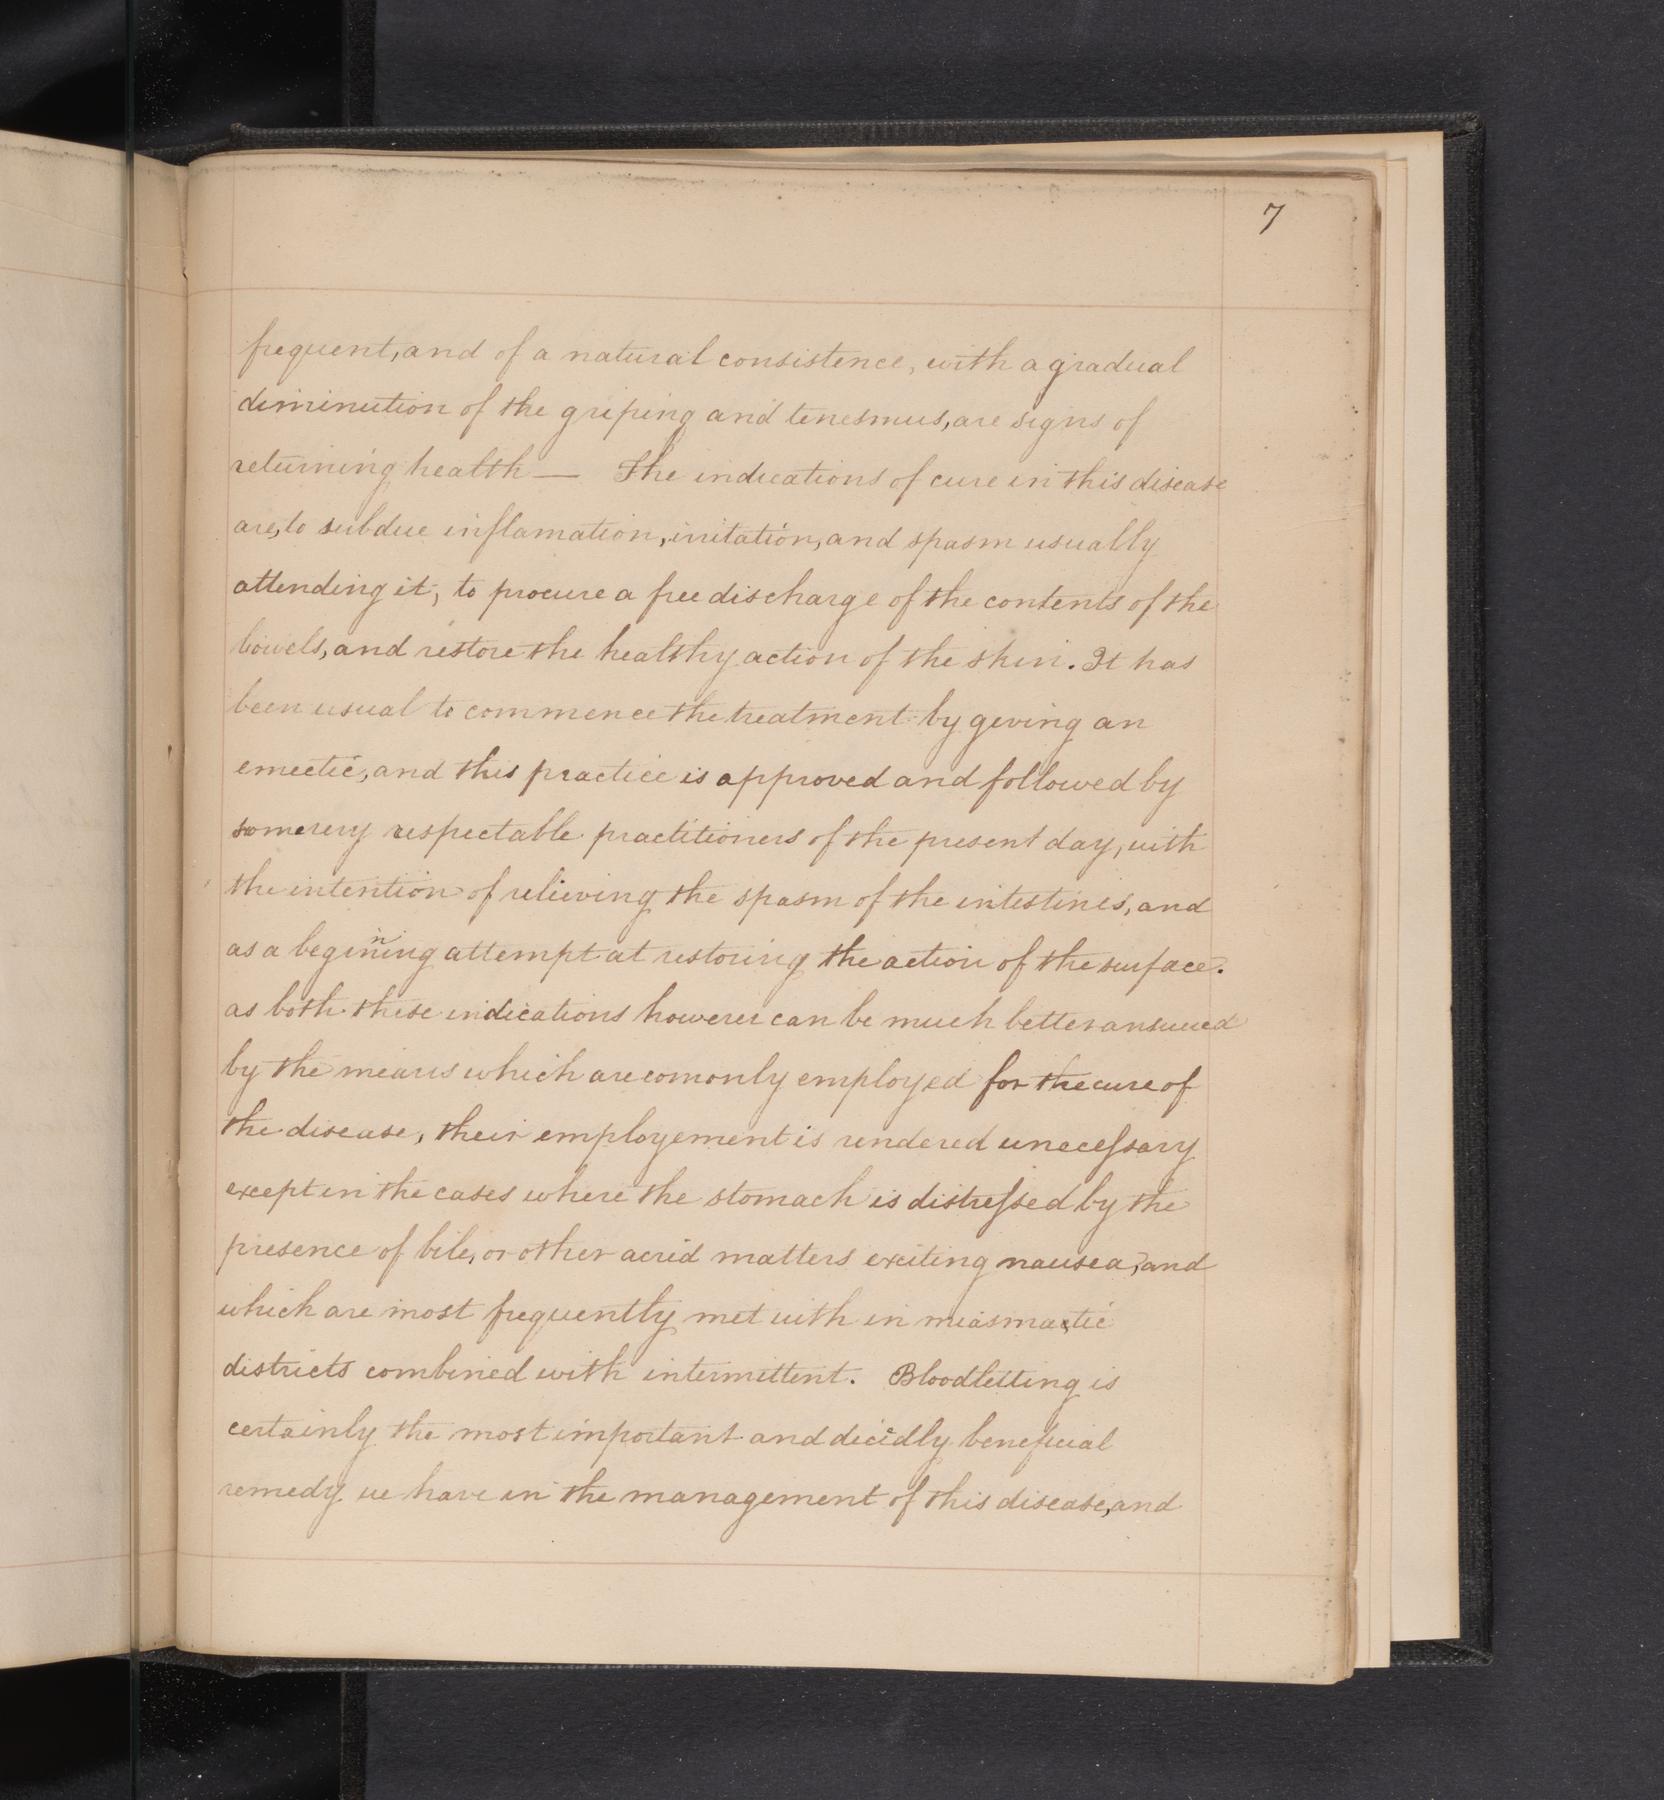 7
frequent, and of a natural consistence, with a gradual
diminution of the griping and tenesmus, are signs of
returning health — The indications of cure in this disease
are, to subdue inflamation, irritation, and spasm usually
attending it, to procure a free discharge of the contents of the
bowels, and restore the healthy action of the skin. It has
been usual to commence the treatment by geving an
emectic, and this practice is approved and followed by
some very respectable practitioners of the present day, with
the intention of relieving the spasm of the intestines, and
as a beginning attempt at restoring the action of the surface.
as both these indications however can be much better answered
by the means which are comonly employed for the cure of
the disease, their employement is rendered unecessary
except in the cases where the stomach is distressed by the
presence of bile, or other acrid matters exciting nausea, and
which are most frequently met with in miasmatic
districts combined with intermittent. Bloodletting is
certainly the most important and decidly beneficial
remedy we have in the management of this disease, and